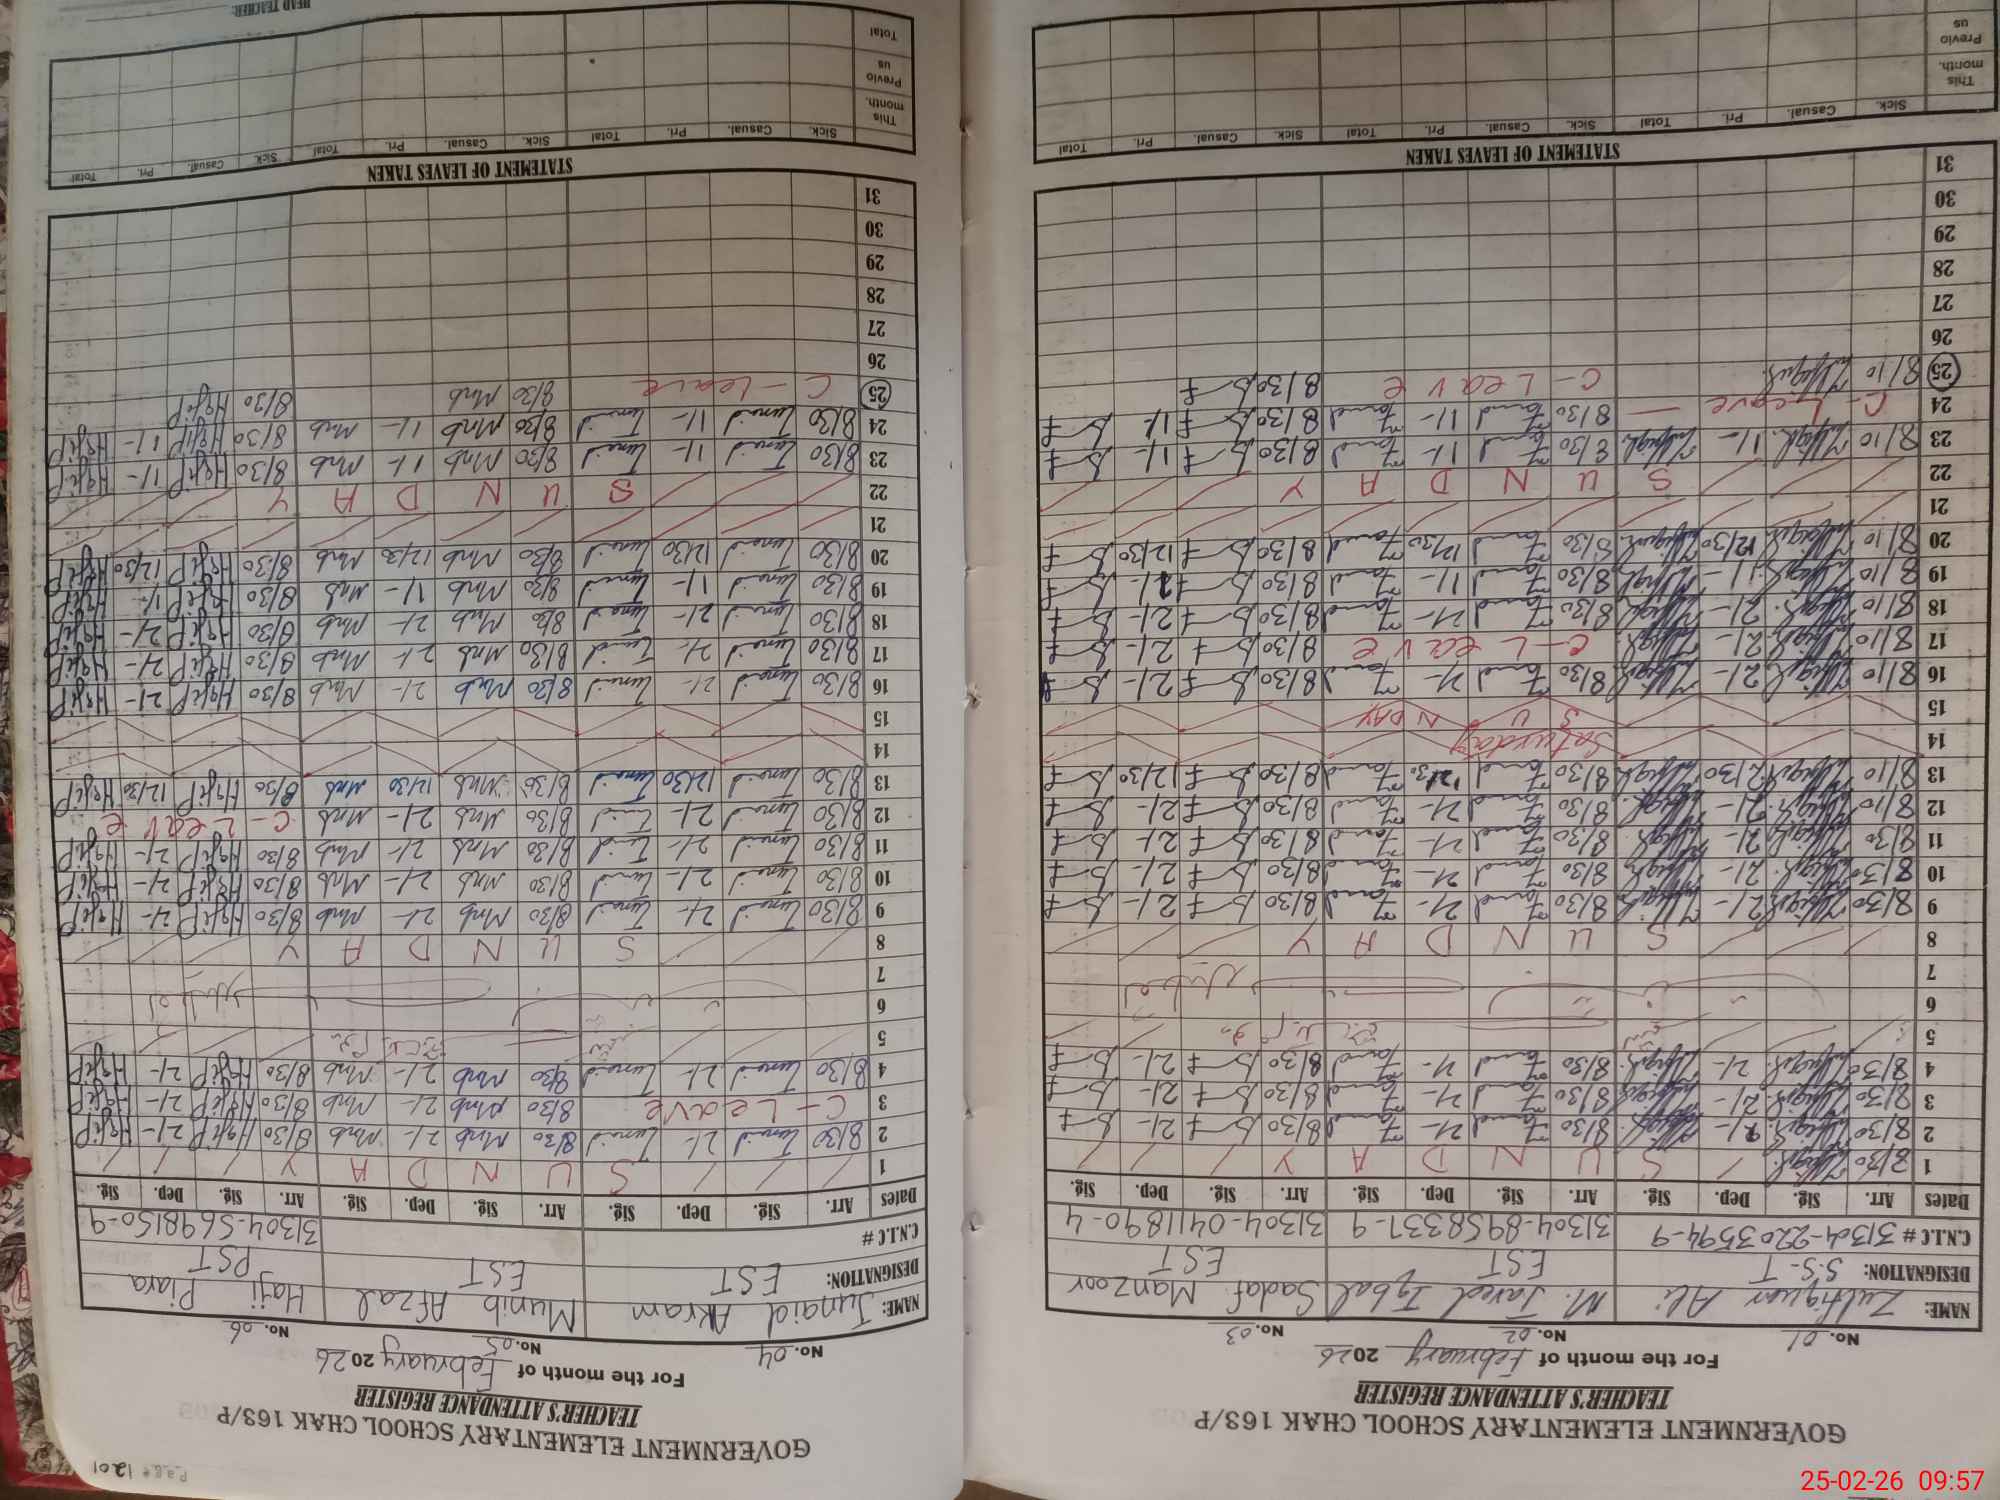 GOVERNMENT ELEMENTARY SCHOOL CHAK 163/P
TEACHER'S ATTENDANCE REGISTER
For the month of February 2026
No. 01 No. 02 No. 03
NAME: Zulfiquar Ali M. Javed Iqbal Sadaf Manzoor
DESIGNATION: S.S-T EST EST
C.N.I.C # 31304-2203594-9 31304-8958337-9 31304-0411890-4
Dates Arr. Sig. Dep. Sig. Arr. Sig. Dep. Sig. Arr. Sig. Dep. Sig.
1 8/30 S U N D A Y
2 8/30 8/30 2/- 8/30 2/-
3 8/30 2/- 8/30 2/- 8/30 2/-
4 8/30 2/- 8/30 2/- 8/30 2/-
5
6
7
8 S U N D A Y
9 8/30 2/- 8/30 2/- 8/30 2/-
10 8/30 2/- 8/30 2/- 8/30 2/-
11 8/30 2/- 8/30 2/- 8/30 2/-
12 8/10 2/- 8/30 2/- 8/30 2/-
13 8/10 12/30 8/30 12/30 8/30 12/30
14 Saturday
15 S U N DAY
16 8/10 2/- 8/30 2/- 8/30 2/-
17 8/10 2/- C-Leave 8/30 2/-
18 8/10 2/- 8/30 2/- 8/30 2/-
19 8/10 1/- 8/30 1/- 8/30 1/-
20 8/10 12/30 8/30 12/30 8/30 12/30
21
22 S U N D A Y
23 8/10 1/- 8/30 1/- 8/30 1/-
24 C-Leave 8/30 1/- 8/30 1/-
25 8/10 C-Leave 8/30
26
27
28
29
30
31
STATEMENT OF LEAVES TAKEN
Sick. Casual. Pri. Total Sick. Casual. Pri. Total Sick. Casual. Pri. Total
This month.
Previous
Page 1201
GOVERNMENT ELEMENTARY SCHOOL CHAK 163/P
TEACHER'S ATTENDANCE REGISTER
For the month of February 2026
No. 04 No. 05 No. 06
NAME: Junaid Akram Munib Afzal Haji Piara
DESIGNATION: EST EST PST
C.N.I.C # 31304-5698150-9
Dates Arr. Sig. Dep. Sig. Arr. Sig. Dep. Sig. Arr. Sig. Dep. Sig.
1 S U N D A Y
2 8/30 Junaid 2/- Junaid 8/30 Mnb 2/- Mnb 8/30 HajiP 2/- HajiP
3 C-Leave 8/30 Mnb 2/- Mnb 8/30 HajiP 2/- HajiP
4 8/30 Junaid 2/- Junaid 8/30 Mnb 2/- Mnb 8/30 HajiP 2/- HajiP
5
6
7
8 S U N D A Y
9 8/30 Junaid 2/- Junaid 8/30 Mnb 2/- Mnb 8/30 HajiP 2/- HajiP
10 8/30 Junaid 2/- Junaid 8/30 Mnb 2/- Mnb 8/30 HajiP 2/- HajiP
11 8/30 Junaid 2/- Junaid 8/30 Mnb 2/- Mnb 8/30 HajiP 2/- HajiP
12 8/30 Junaid 2/- Junaid 8/30 Mnb 2/- Mnb C-Leave
13 8/30 Junaid 12/30 Junaid 8/30 Mnb 12/30 Mnb 8/30 HajiP 12/30 HajiP
14
15
16 8/30 Junaid 2/- Junaid 8/30 Mnb 2/- Mnb 8/30 HajiP 2/- HajiP
17 8/30 Junaid 2/- Junaid 8/30 Mnb 2/- Mnb 8/30 HajiP 2/- HajiP
18 8/30 Junaid 2/- Junaid 8/30 Mnb 2/- Mnb 8/30 HajiP 2/- HajiP
19 8/30 Junaid 1/- Junaid 8/30 Mnb 1/- Mnb 8/30 HajiP 1/- HajiP
20 8/30 Junaid 12/30 Junaid 8/30 Mnb 12/30 Mnb 8/30 HajiP 12/30 HajiP
21
22 S U N D A Y
23 8/30 Junaid 1/- Junaid 8/30 Mnb 1/- Mnb 8/30 HajiP 1/- HajiP
24 8/30 Junaid 1/- Junaid 8/30 Mnb 1/- Mnb 8/30 HajiP 1/- HajiP
25 C-Leave 8/30 Mnb 8/30 HajiP
26
27
28
29
30
31
STATEMENT OF LEAVES TAKEN
Sick. Casual. Pri. Total Sick. Casual. Pri. Total Sick. Casual. Pri. Total
This month.
Previous
Total
HEAD TEACHER:
25-02-26 09:57